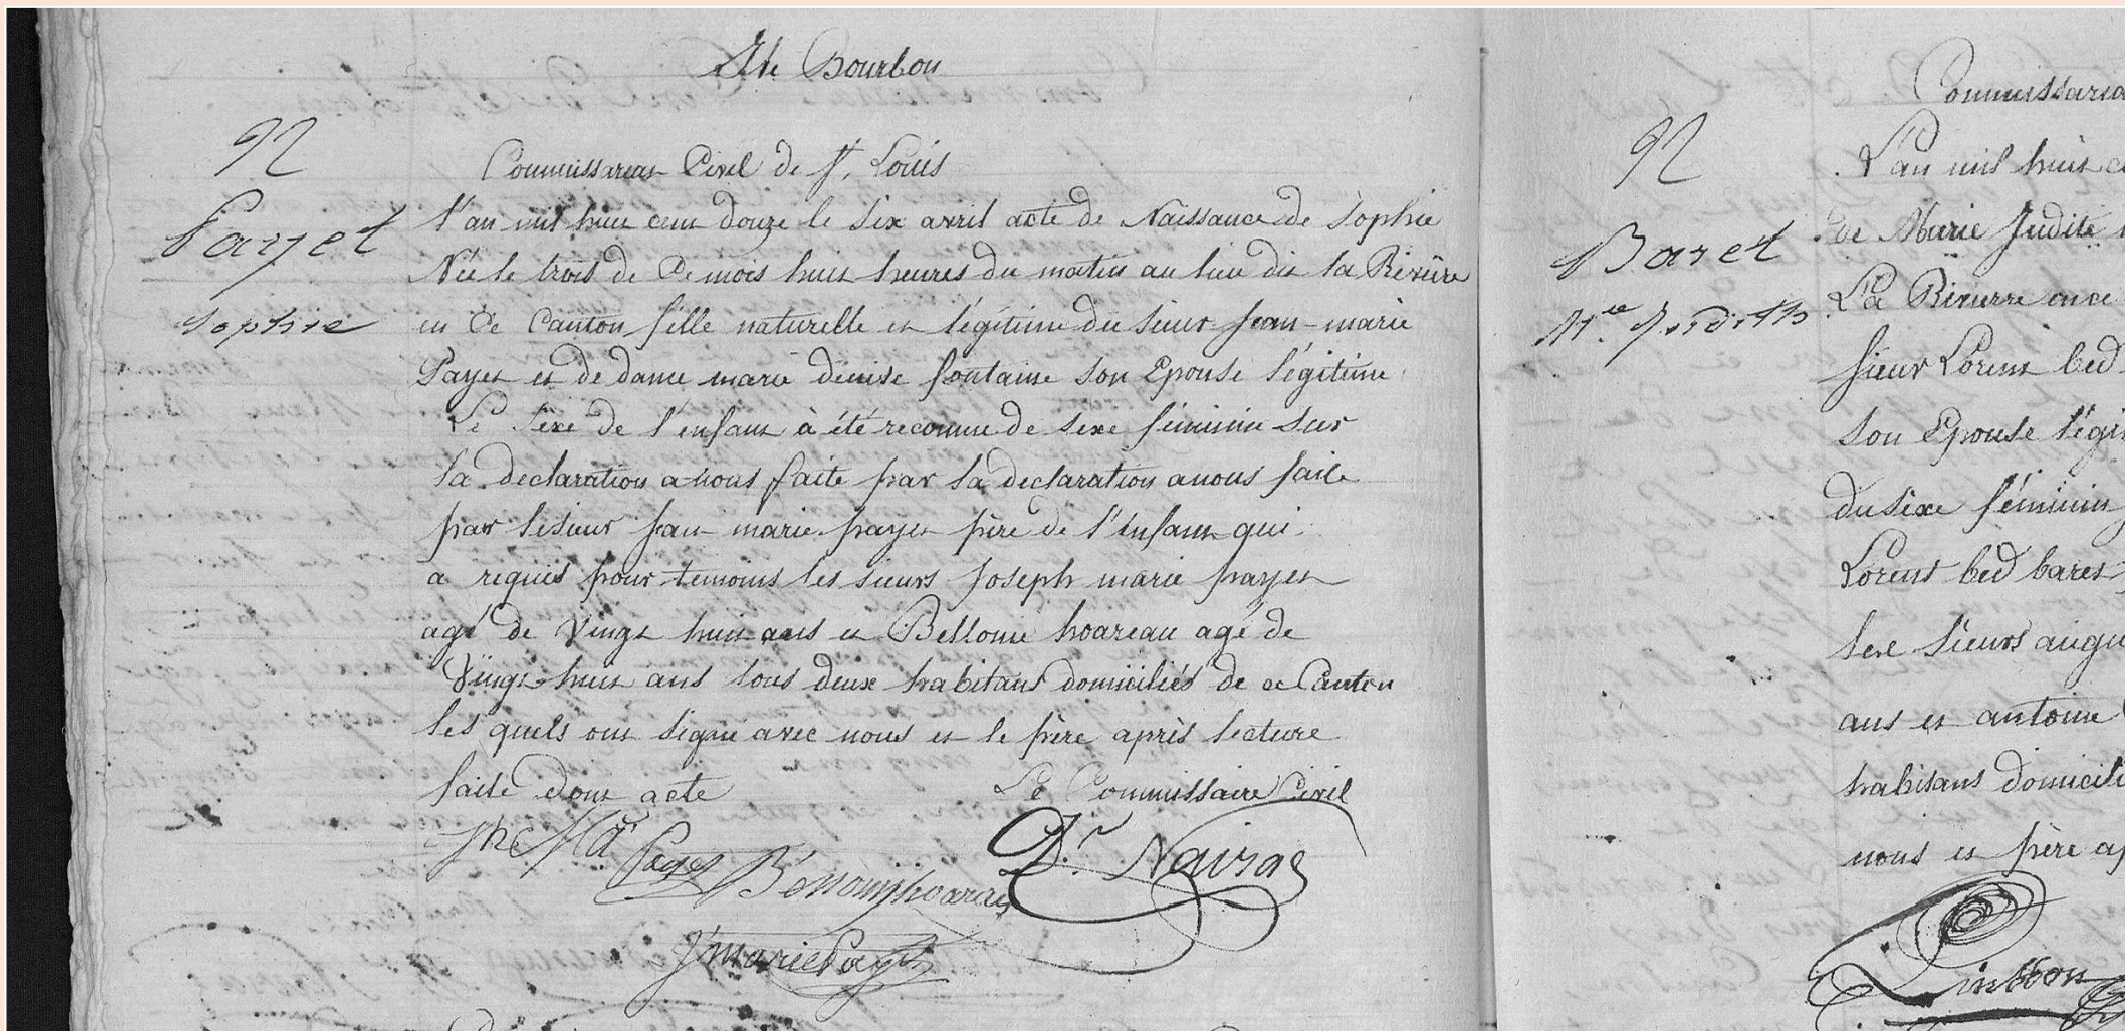 Isle Bourbon
92
Payet
Sophie
Commissariat Civil de St. Louis
L'an mil huit cent douze le six avril acte de Naissance de Sophie
Née le trois de Ce mois huit heures du matin au lieu dit la Rivière
en Ce Canton fille naturelle et légitime du sieur Jean-marie
Payet et de dame marie denise fontaine son Epouse légitime
Le sexe de l'enfant à été reconnu de sexe féminin sur
la declaration a nous faite par la declaration a nous faite
par le sieur Jean-marie payet père de l'enfant qui
a requis pour temoins les sieurs Joseph marie payet
agé de Vingt huit ans et Bellonie hoareau agé de
Vingt-huit ans tous deux habitans domiciliés de ce Canton
les quels ont signé avec nous et le père après lecture
faite dont acte
Le Commissaire Civil
Jh Ma Payet
hoarau
Dr. Nairac
J. marie Payet
Commissaria
92
Baret
Mie. Judith
L'an mil huit ce
de Marie Judite
La Rivierre
sieur Lorent bed
son Epouse légi
du sèxe féminin
Lorent bed baret
les sieurs augu
ans et antoine
habitans domicili
nous et père ap